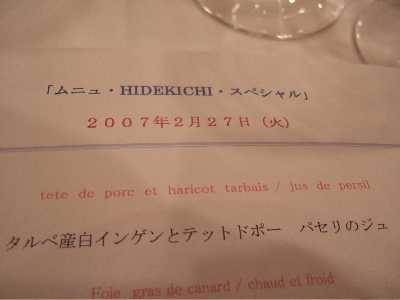 「ムニュ・HIDEKICHI・スペシャル」
２００７年２月２７日（火）
tete de porc et haricot tarbais / jus de persil
タルベ産白インゲンとテットドポー　パセリのジュ
Foie gras de canard / chaud et froid